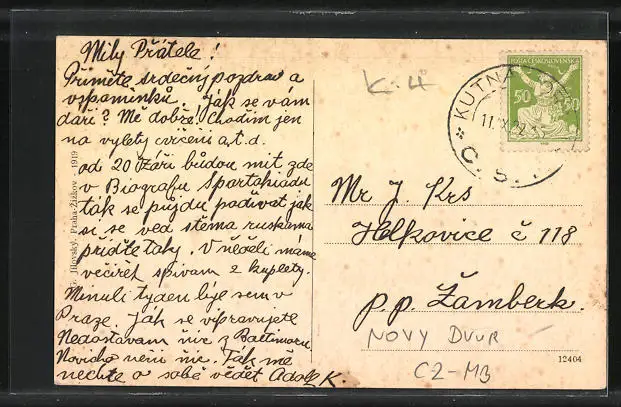 Mily Přátele!
Přiměte srdečný pozdrav a
vspamínků. Jak se vám
daří? Mě dobře! Chodim jen
na vylety cvičeni a.t.d.
od 20 Záři budou mit zde
v Biografu Spartakiadu
ták se půjdu padivat jak
si se ved
přiďte taky. V neděli máme
večírek spivam 2 kuplety.
Minuli tyden byl sem v
Praze. Jak se vypravujete
Nedostavam nic z Baltimoru
Noviho neni nic. Ták mě
nechte o sobě vědět Adolf K.
Jilovský, Praha-Žižkov 1919
K.H
POŠTA ČESKOSLOVENSKÁ
50 50
KUTNÁ
Č.S.
Mr J. Krs
Helkovice č 118
p.p. Žamberk.
NOVY DVUR
C2-MB
12404